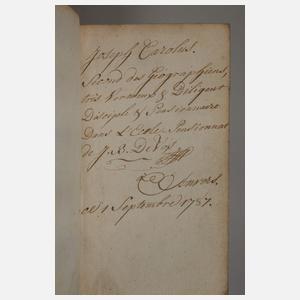 Joseph Carolus.
Second des Géographiens,
très Vertueux & Diligent
Disciple & Pensionnaire
Dans L'Ecole Pensionnat
de J. B. De Vos
Anvers.
ce 1 Septembre 1787.